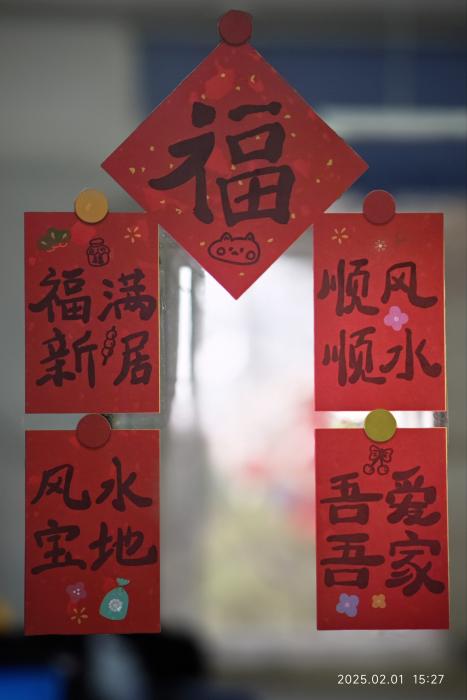 福
福满
新居
顺风
顺水
风水
宝地
吾爱
吾家
2025.02.01 15:27